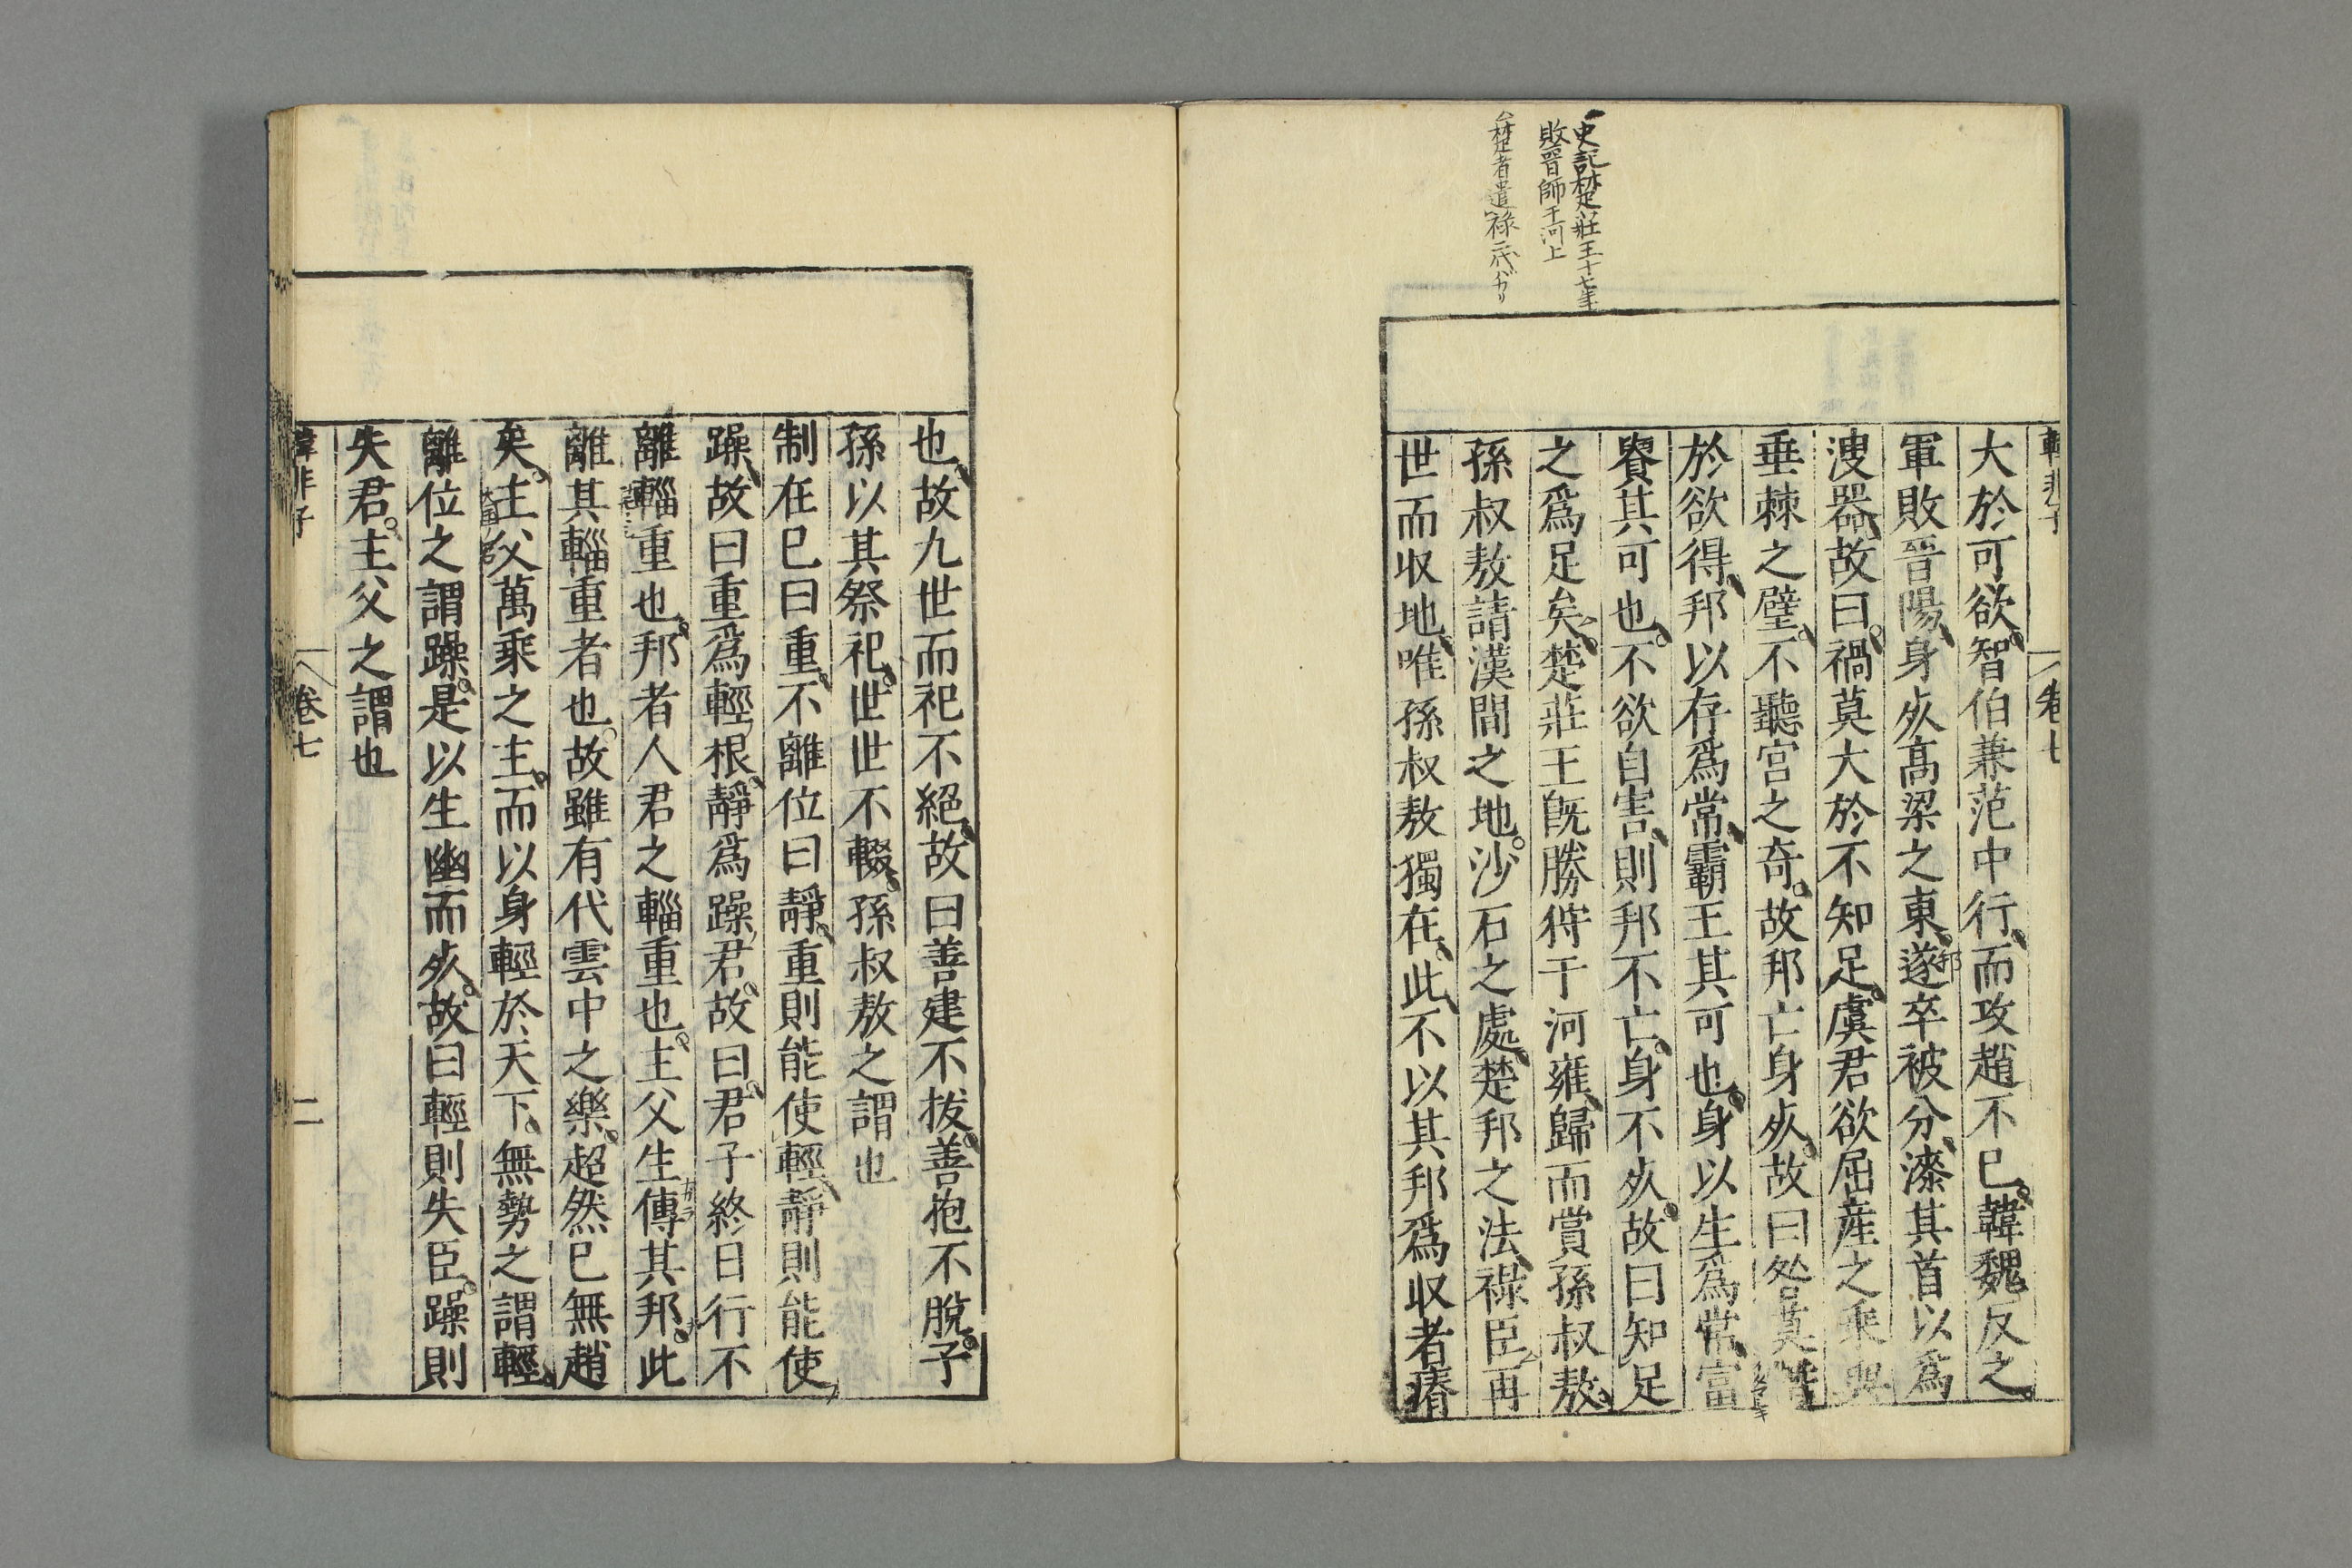 史記楚莊王十七年
敗晉師于河上
韓非子 卷七
大於可欲智伯兼范中行而攻趙不已韓魏反之
軍敗晉陽身死高梁之東遂卒被分漆其首以爲
溲器故曰禍莫大於不知足虞君欲屈產之乘與
垂棘之璧不聽宮之奇故邦亡身死故曰咎莫憯
於欲得邦以存爲常霸王其可也身以生爲常富
貴其可也不欲自害則邦不亡身不死故曰知足
之爲足矣楚莊王既勝狩于河雍歸而賞孫叔敖
孫叔敖請漢間之地沙石之處楚邦之法祿臣再
世而收地唯孫叔敖獨在此不以其邦爲收者瘠
也故九世而祀不絕故曰善建不拔善抱不脫子
孫以其祭祀世世不輟孫叔敖之謂也
制在已曰重不離位曰靜重則能使輕靜則能使
躁故曰重爲輕根靜爲躁君故曰君子終日行不
離輜重也邦者人君之輜重也主父生傳其邦此
離其輜重者也故雖有代雲中之樂超然已無趙
矣主父萬乘之主而以身輕於天下無勢之謂輕
離位之謂躁是以生幽而死故曰輕則失臣躁則
失君主父之謂也
韓非子 卷七 二